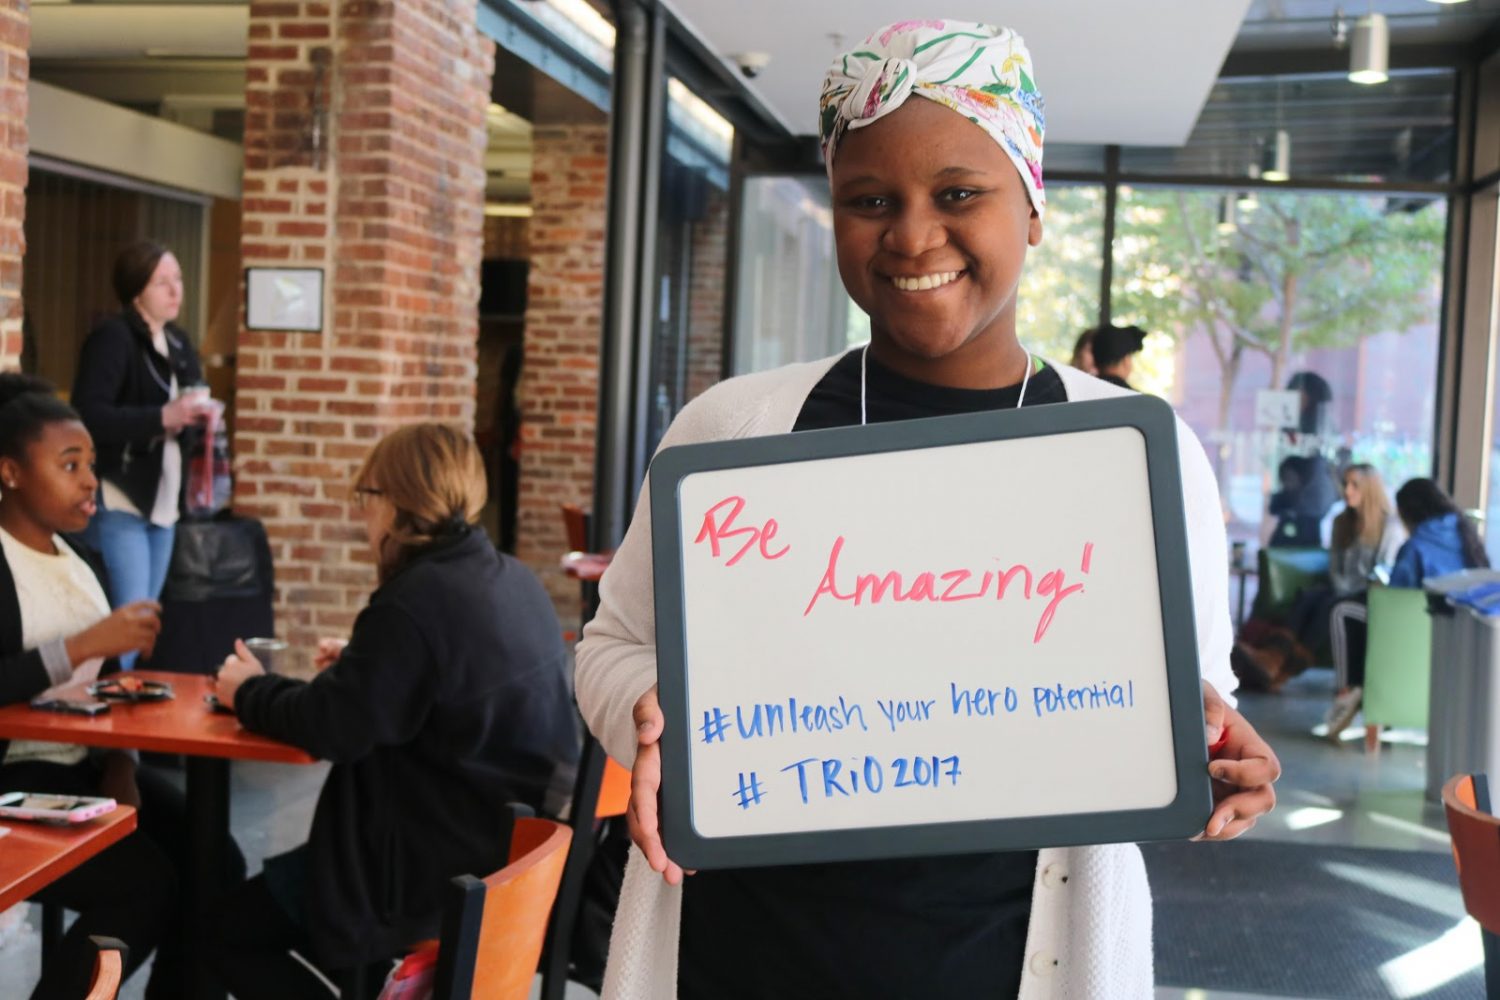 Be
Amazing!
#unleash your hero potential
# TRiO 2017